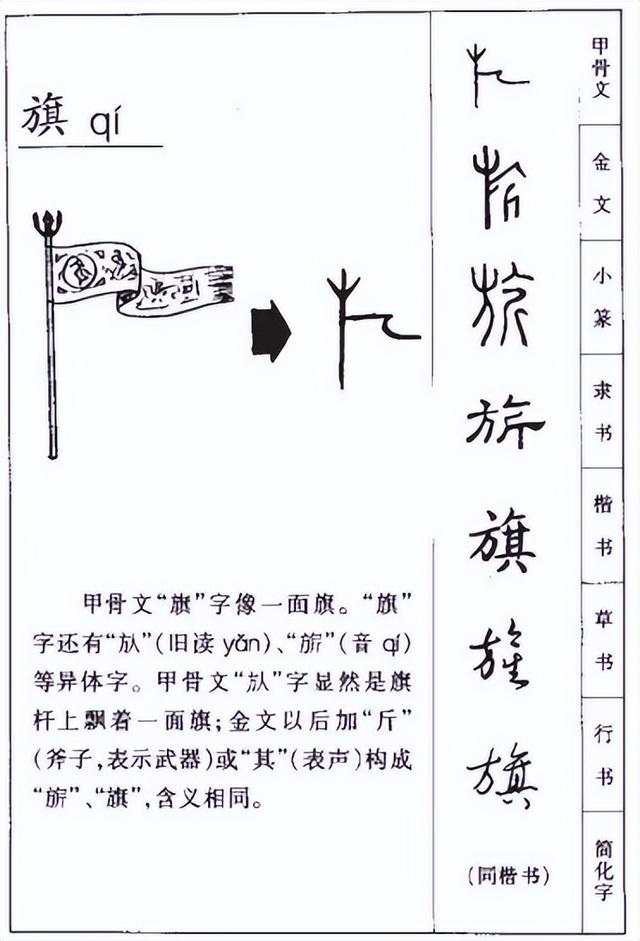 旗 qí
甲骨文“旗”字像一面旗。“旗”
字还有“㫃”(旧读 yǎn)、“旂”(音 qí)
等异体字。甲骨文“㫃”字显然是旗
杆上飘着一面旗;金文以后加“斤”
(斧子,表示武器)或“其”(表声)构成
“旂”、“旗”,含义相同。
㫃
旂
旂
旂
旗
旗
旗
(同楷书)
甲骨文
金文
小篆
隶书
楷书
草书
行书
简化字